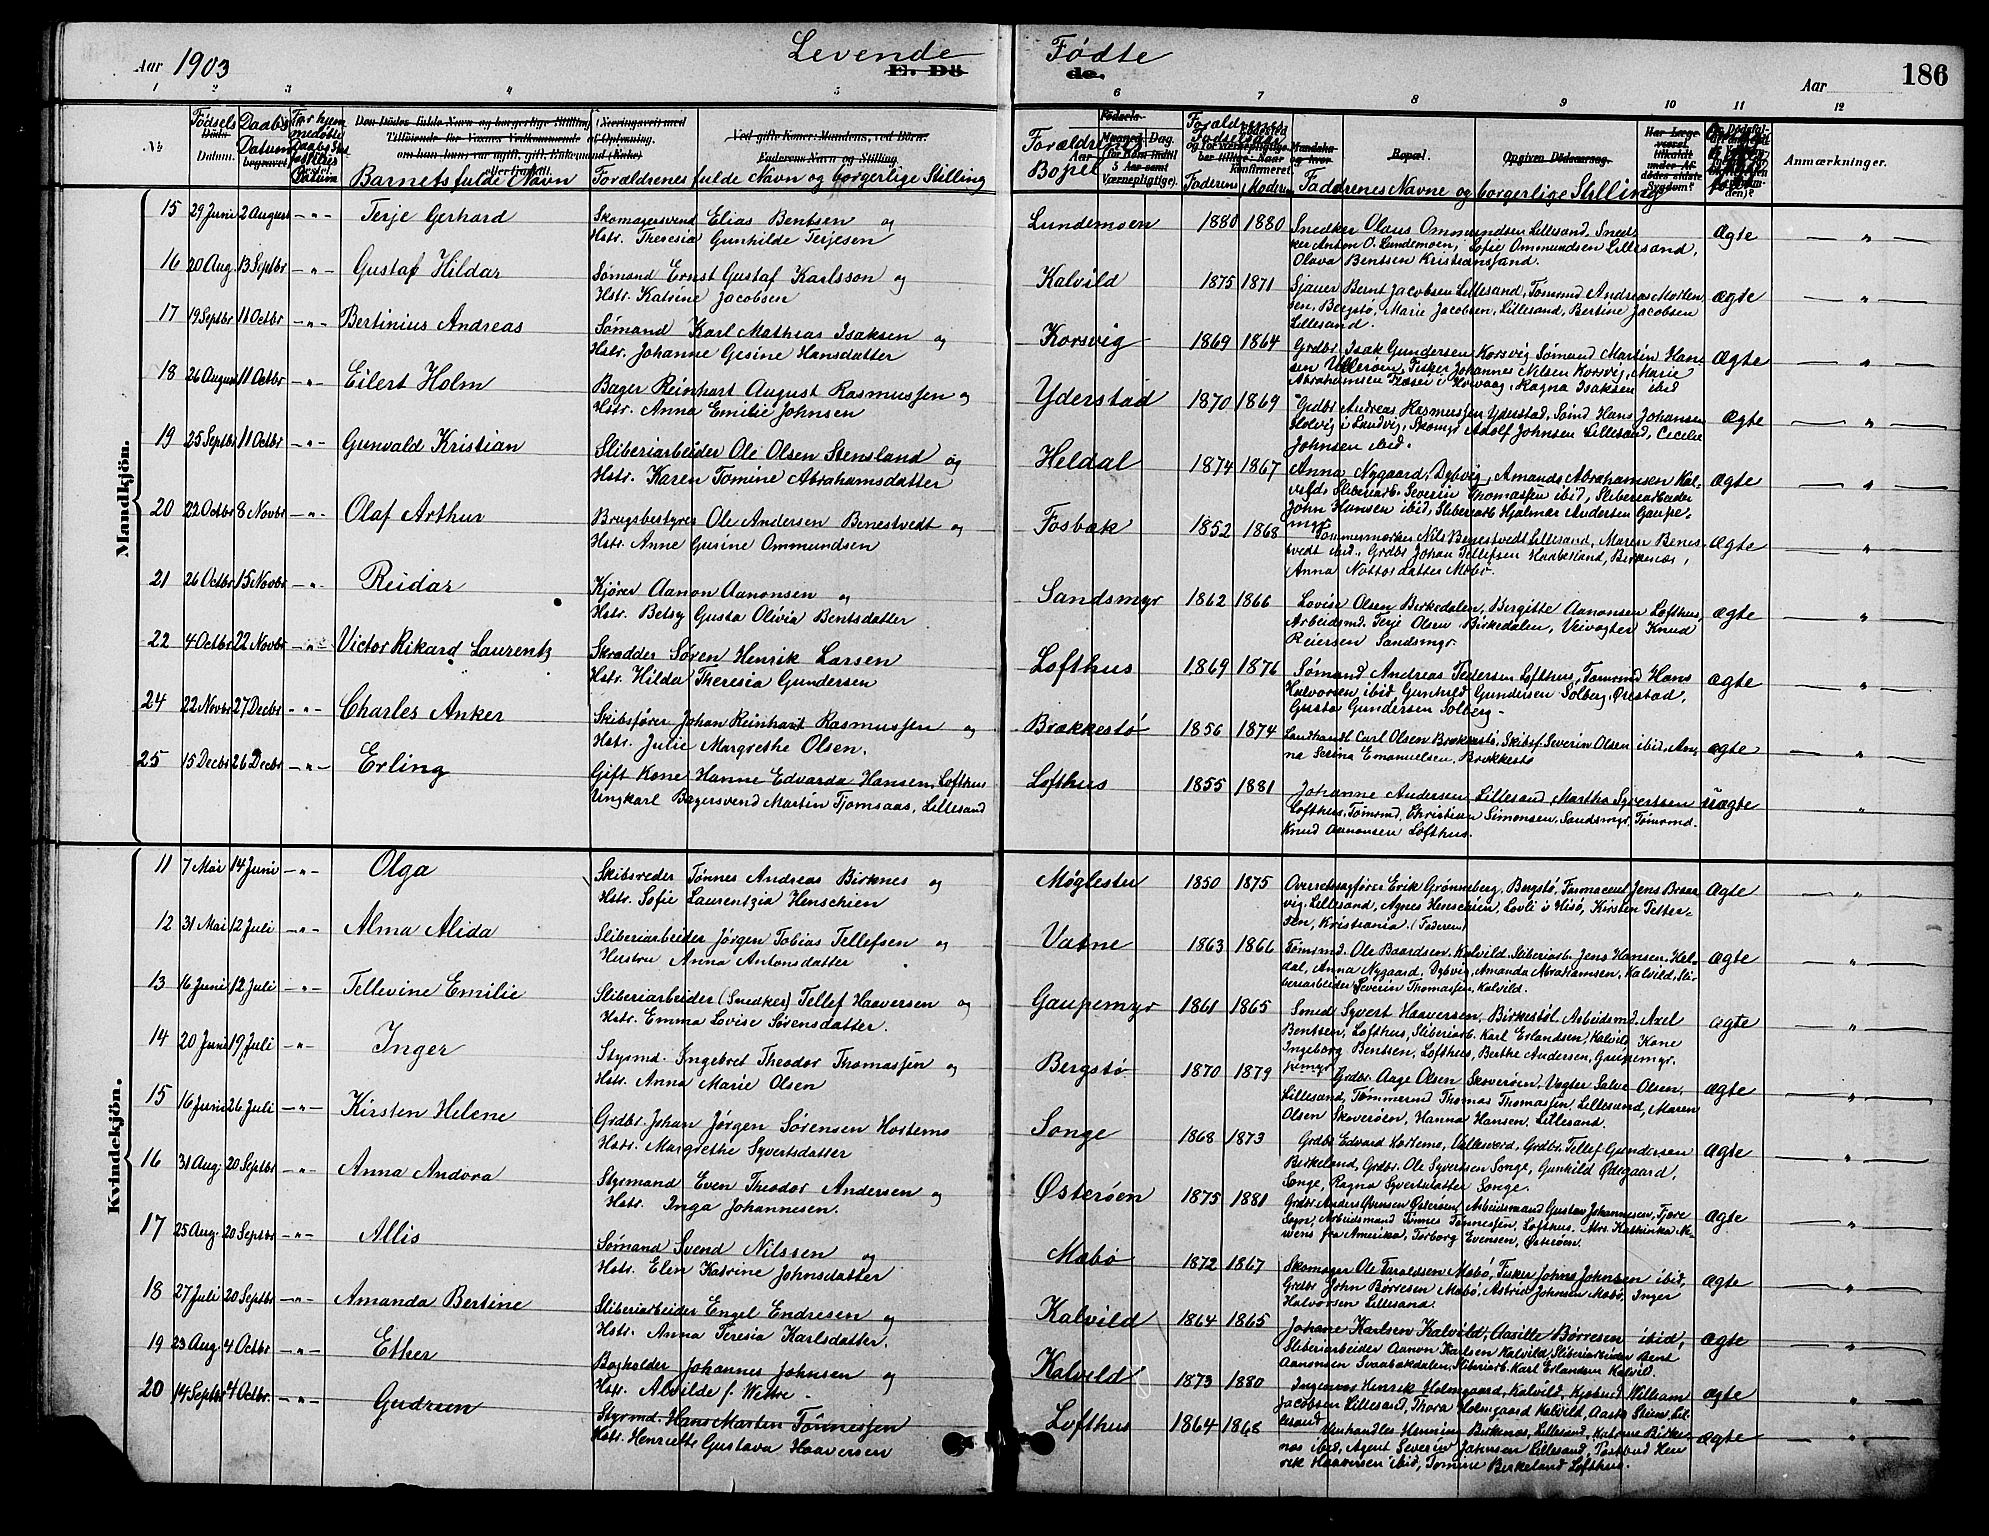 Levende Fødte
Aar 1903
E. Dö de.
Aar
186
1 2 3 4 5 6 7 8 9 10 11 12
№
Fødsels Datum.
Daabs Datum
Barnets fulde Navn
Forældrenes fulde Navn og borgerlige Stilling
Forældrenes Bopel
Faderen Moderen
Faddrenes Navne og borgerlige Stilling
Anmærkninger.
Mandkjön.
15 29 Juni 2 August —"— Terje Gerhard Skomagersvend Elias Bentsen og Lundemoen 1880 1880 Snedker Olaus Ommundsen Lillesand, Sned- Ægte — " —
Hstr. Theresia Gunhilde Terjesen ker Anton O. Lundemoen, Sofie Ommundsen Lillesand,
Olava Bentsen Kristiansand.
16 20 Aug. 13 Septbr —"— Gustaf Hildar Sømand Ernst Gustaf Karlsson og Kalvild 1875 1871 Sjauer Bernt Jacobsen Lillesand, Tømrmd Andreas Morten- Ægte — " —
Hstr. Katrine Jacobsen sen, Bergstø, Marie Jacobsen, Lillesand, Bertine Jacobsen
Lillesand.
17 19 Septbr 11 Octbr —"— Bertinius Andreas Sømand Karl Mathias Isaksen og Korsvig 1869 1864 Grdbr. Isak Gundersen Korsvig Sømand Martin Han- Ægte — " —
Hstr. Johanne Gesine Hansdatter sen Ulleroen, Fisker Johannes Nilsen Korsvig, Marie
Abrahamsen i Høvaag, Ragna Isaksen ibid
18 26 August 11 Octbr —"— Eilert Holm Bager Reinhart August Rasmussen og Yderstad 1870 1869 Grdbr Andreas Rasmussen Yderstad, Sømd Hans Johansen Ægte — " —
Hstr. Anna Emilie Johnsen i Landvig, Skomgr Adolf Johnsen Lillesand, Cecelie
Johnsen ibid.
19 25 Septbr 11 Octbr —"— Gunvald Kristian Sliberiarbeider Ole Olsen Stensland og Heldal 1874 1867 Anna Nygaard, Dybvig, Amanda Abrahamsen Kal- Ægte — " —
Hstr. Karen Tomine Abrahamsdatter vild, Sliberiarb. Severin Thomassen ibid, Sliberiarbeider
John Hansen ibid, Sliberiarb Hjalmar Andersen Gaupe-
myr
20 22 Octbr 8 Novbr —"— Olaf Arthur Brugsbestyrer Ole Andersen Benestvedt og Fosbæk 1852 1868 Tømmermærker Nils Benestvedt Lillesand, Maren Benes- Ægte — " —
Hstr. Anne Gusine Ommundsen tvedt ibid, Grdbr Johan Tellefsen Haabesland, Birkenæs,
Anna Nottosdatter Mæbø.
21 26 Octbr 15 Novbr —"— Reidar Kjører Aanon Aanonsen og Sandsmyr 1862 1866 Lovise Olsen Birkedalen, Bergitte Aanonsen Lofthus, Ægte — " —
Hstr. Betsy Gusta Olivia Bentsdatter Arbeidsmd. Terje Olsen Birkedalen, Veivogter Knud
Reiersen Sandsmyr.
22 4 Octbr 22 Novbr —"— Victor Rikard Laurentz Skrædder Søren Henrik Larsen Lofthus 1869 1876 Sømand Andreas Pedersen Lofthus, Tømrmd Hans Ægte — " —
Hstr. Hilda Theresia Gundersen Halvorsen, ibid, Gunhild Gundersen Solberg, Ørestad,
Gusta Gundersen Solberg —
24 22 Novbr 27 Decbr —"— Charles Anker Skibsfører Johan Reinhart Rasmussen og Brækkestø 1856 1874 Landhandl. Carl Olsen Brækkestø, Skibsf Severin Olsen ibid, An- Ægte — " —
Hstr. Julie Margrethe Olsen. na Serina Emanuelsen, Brækkestø
25 15 Decbr 26 Decbr —"— Erling Gift Kone Hanne Edvarda Hansen, Lofthus Lofthus 1855 1881 Johanne Andersen Lillesand, Martha Syvertsen uægte "
Ungkarl Bagersvend Martin Tjomsaas, Lillesand Lofthus, Tømrmd. Christian Simonsen, Sandsmyr, Tømrmd.
Knud Aanonsen Lofthus.
Kvindekjön.
11 7 Mai 14 Juni —"— Olga Skibsreder Tønnes Andreas Birknes og Møglestu 1850 1875 Overretssagfører Erik Grønneberg, Bergstø, Farmaceut Jens Braar- Ægte — "
Hstr. Sofie Laurentzia Henschien vig, Lillesand, Agnes Henschien, Lovli i Hisø, Kirsten Petter-
sen, Kristiania (Faderen)
12 31 Mai 12 Juli —"— Alma Alida Sliberiarbeider Jørgen Tobias Tellefsen og Vatne 1863 1866 Tømrmd. Ole Baardsen Kalvild, Sliberiarb. Jens Hansen, Hel- Ægte — " —
Hustru Anna Antonsdatter dal, Anna Nygaard, Dybvig, Amanda Abrahamsen, Kalvild, Sli-
beriarbeider Severin Thomassen, Kalvild.
13 16 Juni 12 Juli —"— Tellevine Emilie Sliberiarbeider (Snedker) Tellef Haaversen og Gaupemyr 1861 1865 Smed Syvert Haaversen, Birkestøl, Arbeidsmd. Axel Ægte — " —
Hstr. Emma Lovise Sørensdatter. Bentsen, Lofthus, Sliberiarb. Karl Erlandsen, Kalvild, Kone
Ingeborg Bentsen, Lofthus, Berthe Andersen, Gaupemyr.
14 20 Juni 19 Juli —"— Inger Styrmd. Ingebret Theodor Thomassen og Bergstø 1870 1879 Grdbr. Aage Olsen Skoverøen, Vogter Salve Olsen, Ægte — " —
Hstr. Anna Marie Olsen Lillesand, Tømmermd Thomas Thomassen, Lillesand, Maren
Olsen Skoverøen, Hanna Hansen, Lillesand.
15 16 Juni 26 Juli —"— Kirsten Helene Grdbr Johan Jørgen Sørensen Hortemo Songe 1868 1873 Grdbr Edvard Hortemo, Vallesverd, Grdbr. Tellef Gundersen Ægte — " —
Hstr. Margrethe Syvertsdatter Birkeland, Grdbr. Ole Syvertsen Songe, Gunhild Ødegaard,
Songe, Ragna Syvertsdatter Songe.
16 31 Aug. 20 Septbr —"— Anna Andora Styrmand Even Theodor Andersen og Østerøen 1875 1881 Grdbr Anders Evensen Østerøen, Arbeidsmand Gustav Johannesen, Fjære Ægte — " —
Hstr. Inga Johannesen. Sogn, Arbeidsmand Tønnes Tønnessen, Lofthus. Mrs. Kathinka
fra Amerika, Torborg Evensen, Østerøen.
17 25 Aug. 20 Septbr —"— Allis Sømand Svend Nilssen og Mæbø 1872 1867 Skomager Ole Taraldsen Mæbø, Fisker Johns Johnsen ibid, Ægte — " —
Hstr. Elen Katrine Johnsdatter Grdbr John Børresen Mæbø, Astrid Johnsen Mæbø, Inger
Halvorsen Lillesand.
18 27 Juli 20 Septbr —"— Amanda Bertine Sliberiarbeider Engel Endresen og Kalvild 1864 1865 Johane Karlsen Kalvild, Aasille Børresen ibid, Ægte — " —
Hstr. Anna Teresia Karlsdatter. Sliberiarbeider Aanon Karlsen Kalvild, Sliberiarbeider Bent
Aanonsen Svaabækdalen, Sliberiarb. Karl Erlandsen Kalvild.
19 23 Aug. 4 Octbr —"— Ether Bogholder Johannes Johnsen og Kalvild 1873 1880 Ingeniør Henrik Holmgaard, Kalvild, William Ægte — " —
Hstr. Alvilde f. Witte. Jacobsen Lillesand, Thora Holmgaard Kalvild, Aasta Steen Lil-
lesand
20 14 Septbr 4 Octbr. —"— Gudrun Styrmd. Hans Martin Tønnessen Lofthus 1864 1868 Henning Birknes, Lillesand, Katrine Birke- Ægte — " —
Hstr. Henriette Gustava Haaversen nes ibid, Agent Severin Jahnsen Lillesand, Postbud Hen-
rik Haaversen ibid, Tomine Birkeland Lofthus.